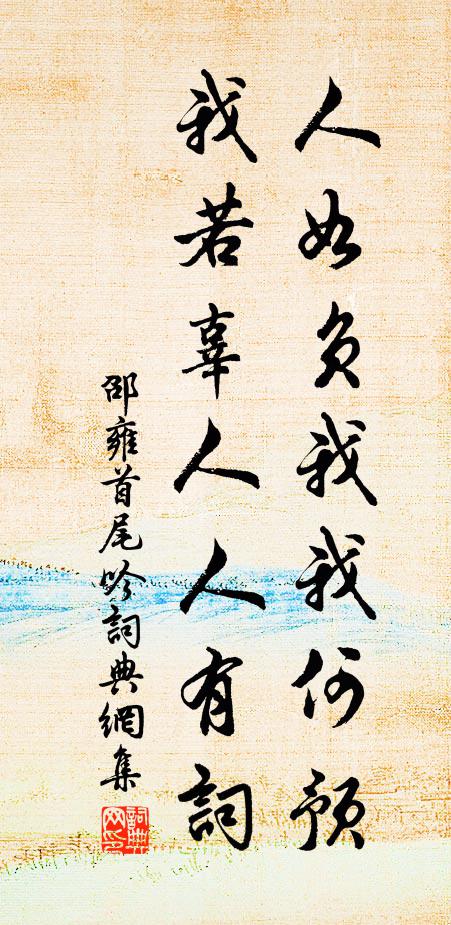 人如負我我何預
我若辜人人有詞
邵雍首尾吟詞典網集
詞典
网印